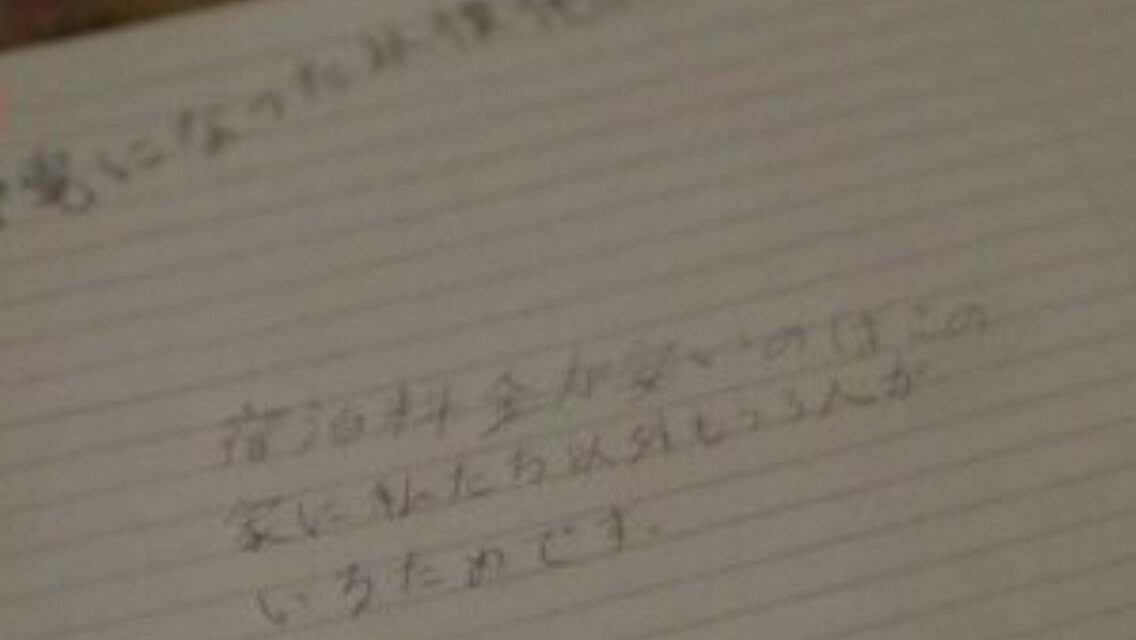 になった
宿泊料金が安いのはこの
家に私たち以外もう1人が
いるためです.